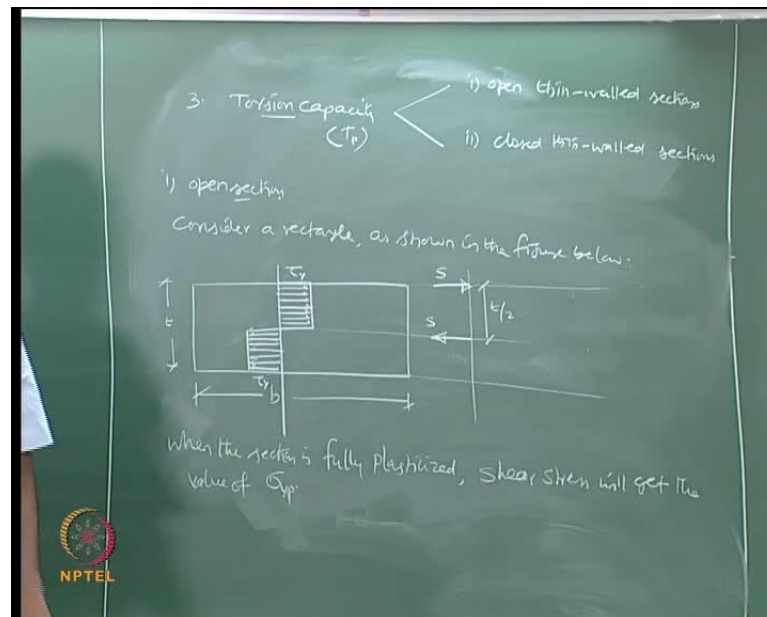 3. Torsion capacity
(Tp)
i) open thin-walled sections
ii) closed thin-walled sections
i) open section
Consider a rectangle, as shown in the figure below.
τy
S
t
t/2
S
τy
b
When the section is fully plasticized, shear stress will get the
value of σyp.
NPTEL